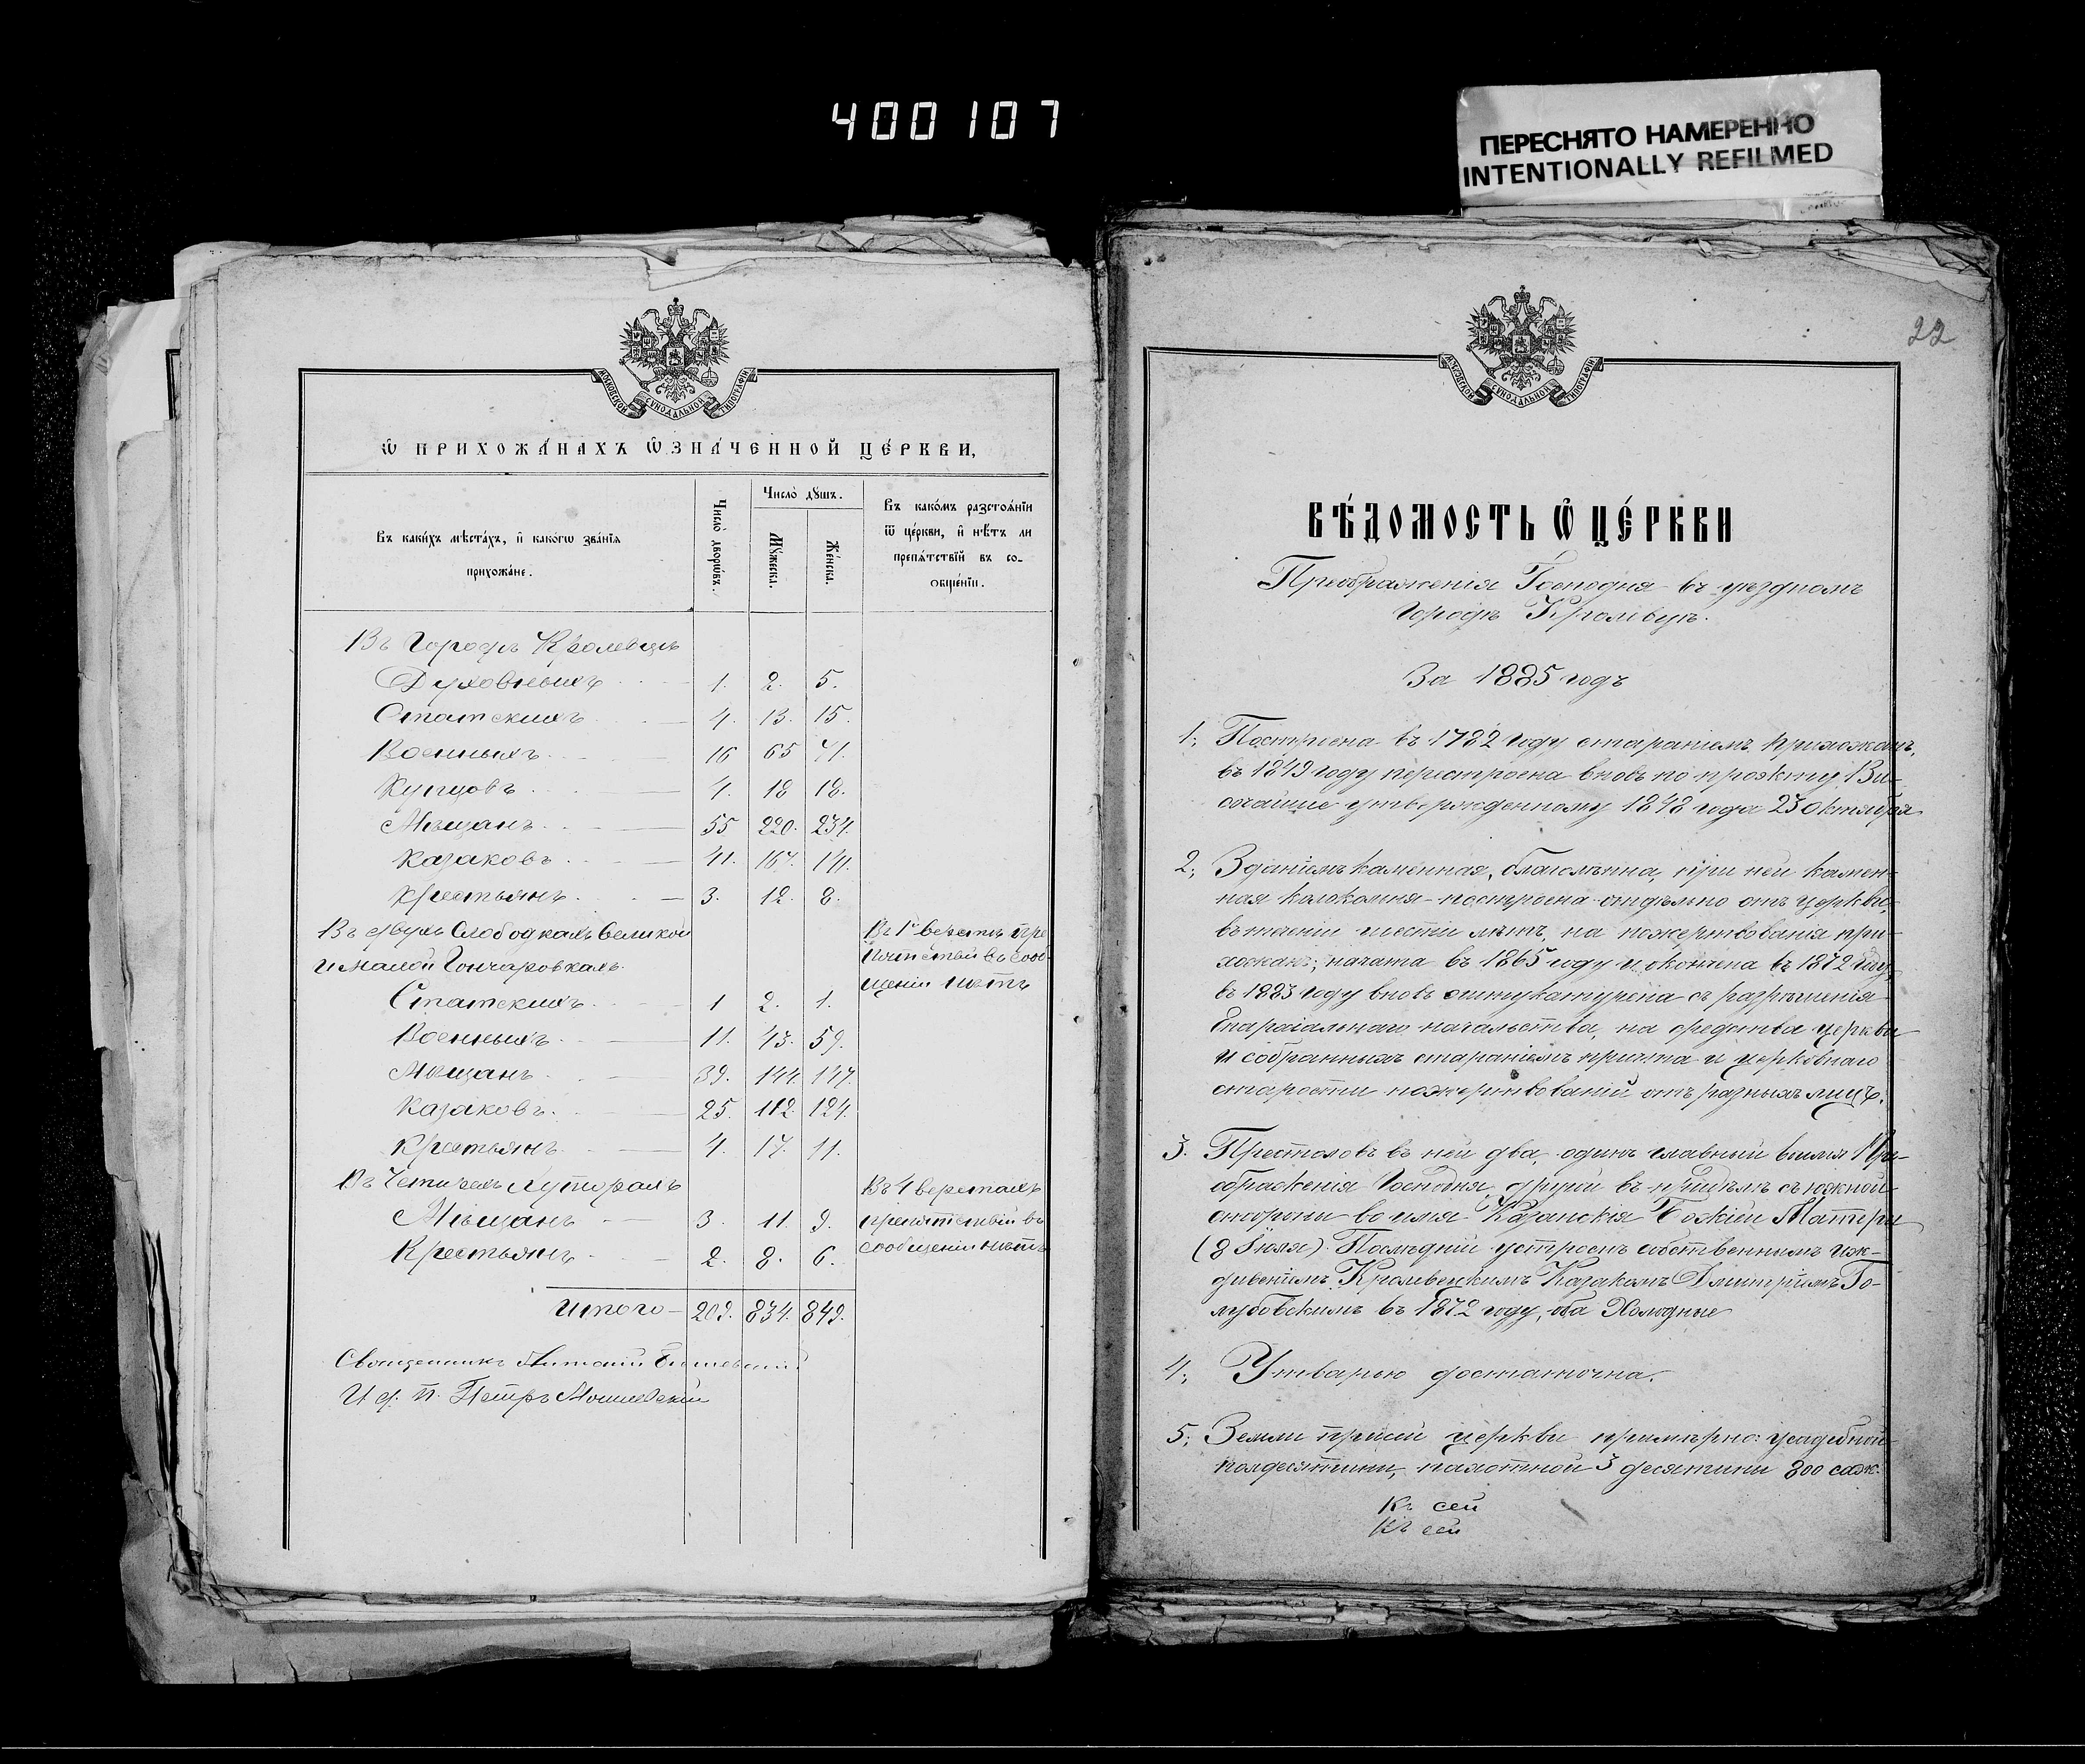 400107
ПЕРЕСНЯТО НАМЕРЕННО
INTENTIONALLY REFILMED
МОСКОВСКОЙ СѴНОДАЛЬНОЙ ТИПОГРАФІИ
Ѡ ПРИХОЖА́НАХЪ ѠЗНА́ЧЕННОЙ ЦЕ́РКВИ,
Въ каки́хъ мѣста́хъ, и҆ како́гѡ зва́нїѧ
прихожа́не.
Число̀ дворѡ́въ.
Число̀ дꙋ́шъ.
Мꙋ́жеска.
Же́нска.
Въ како́мъ разстоѧ́нїи
ѿ це́ркви, и҆ нѣ́тъ ли
препѧ́тствїй въ со-
ѻбще́нїи.
Въ Городѣ Кролевцѣ
Духовныхъ 1. 2. 5.
Статскихъ 4. 13. 15.
Военныхъ 16 65 71.
Купцовъ 4. 18 18.
Мѣщанъ 55 220. 234.
Казаковъ 41. 167. 171.
Крестьянъ 3. 12. 8.
Въ двухъ Слободкахъ Великой
и малой Гончаровкахъ.
Въ 1й верстѣ пре
пятствій въ сооб
щеніи нѣтъ
Статскихъ 1 2. 1.
Военныхъ 11. 43. 59.
Мѣщанъ 39. 144. 147.
Казаковъ 25. 112. 124.
Крестьянъ 4. 17. 11.
Въ Четырехъ хуторахъ
Въ 4 верстахъ
препятствій въ
сообщеніи нѣтъ
Мѣщанъ 3. 11. 9.
Крестьянъ 2. 8. 6.
Итого 209. 834. 849.
Священникъ
И. д. п. Петръ
22
МОСКОВСКОЙ СѴНОДАЛЬНОЙ ТИПОГРАФІИ
ВѢ́ДОМОСТЬ Ѡ҆ ЦЕ́РКВИ
Преображенія Господня въ уѣздномъ
городѣ Кролевцѣ.
За 1885 годъ
1., Построена въ 1782 году стараніемъ прихожанъ,
въ 1849 году перестроена вновь по проэкту Вы-
сочайше утвержденному 1848 года 23 Октября
2., Зданіемъ каменная, благолѣпна, при ней камен-
ная колокольня построена отдѣльно отъ церкви,
въ теченіи шести лѣтъ, на пожертвованія при-
хожанъ; начата въ 1865 году и окончена въ 1872 году,
въ 1883 году вновь оштукатурена съ разрѣшенія
Епархіальнаго начальства, на средства церкви
и собранныхъ стараніемъ причта и церковнаго
старосты пожертвованій отъ разныхъ лицъ.
3. Престоловъ въ ней два, одинъ главный во имя Пре-
ображенія Господня, другой въ придѣлѣ съ южной
стороны во имя Казанскія Божіей Матери
(8 Іюля). Послѣдній устроенъ собственнымъ иж-
дивеніемъ Кролевецкимъ Казакомъ Димитріемъ Го-
лубовскимъ въ 1872 году, оба Холодные
4., Утварью достаточна.
5., Земли при сей церкви примѣрно: усадебной
полдесятины, пахотной 3 десятины 800 саж.
Къ сей
Къ сей